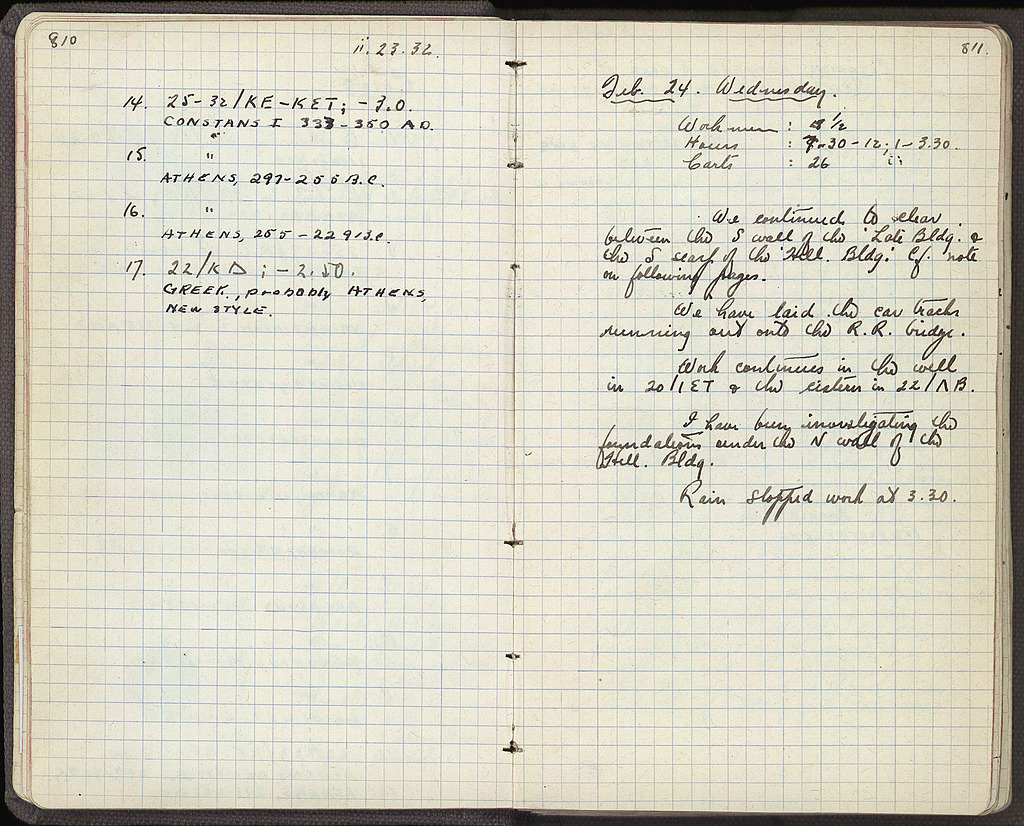 810
ii. 23. 32.
14. 25-32/KE-KET; -3.0.
CONSTANS I 333-350 A.D.
"
15. "
ATHENS, 297-255 B.C.
16. "
ATHENS, 255-229 B.C.
17. 22/KΔ; -2.50.
GREEK, probably ATHENS,
NEW STYLE.
811.
Feb. 24. Wednesday.
Workmen : 8 1/2
Hours : 7.30-12; 1-3.30.
Carts : 26
We continued to clear
between the S wall of the 'Late Bldg.' &
the S scarp of the 'Hell. Bldg.' Cf. note
on following pages.
We have laid the car tracks
running out onto the R.R. bridge.
Work continues in the well
in 20/ΙΣΤ & the cistern in 22/ΛΒ.
I have been investigating the
foundations under the N wall of the
Hell. Bldg.
Rain stopped work at 3.30.